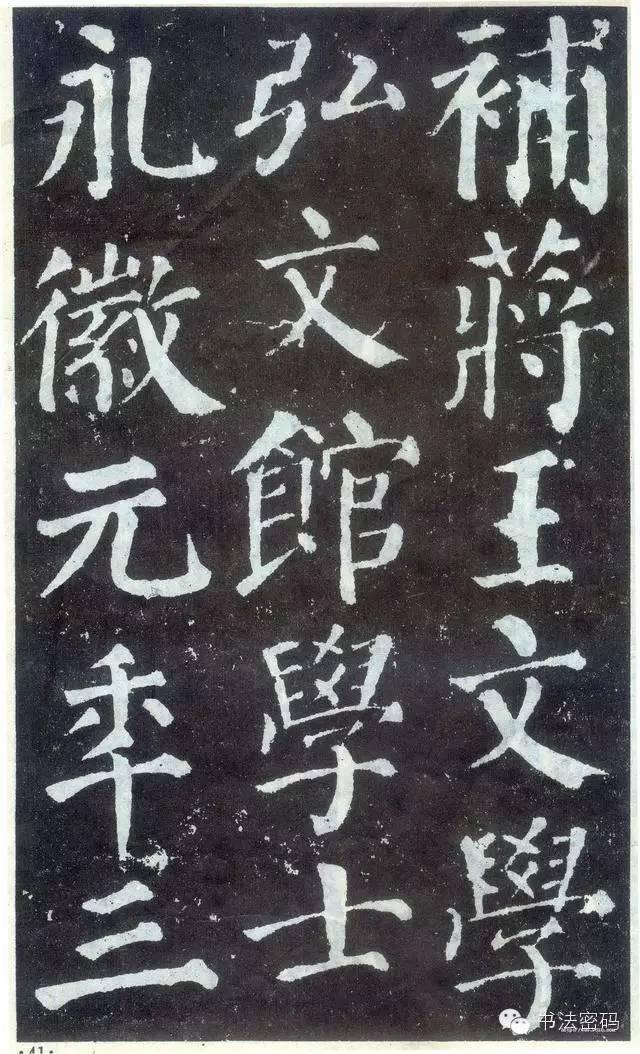 補蔣王文學
弘文館學士
永徽元年三
·41·
书法密码